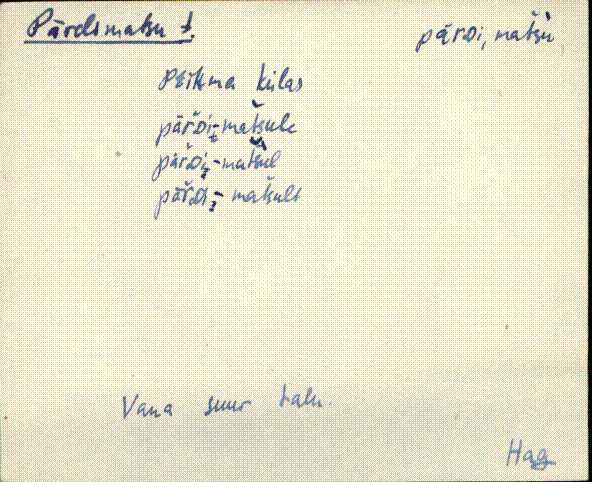 Pärdsmatsu t. pärdi, matsu
Peikma külas
pärdi-matsule
pärdi-matsul
pärdi-matsult
Vana suur talu.
Hag